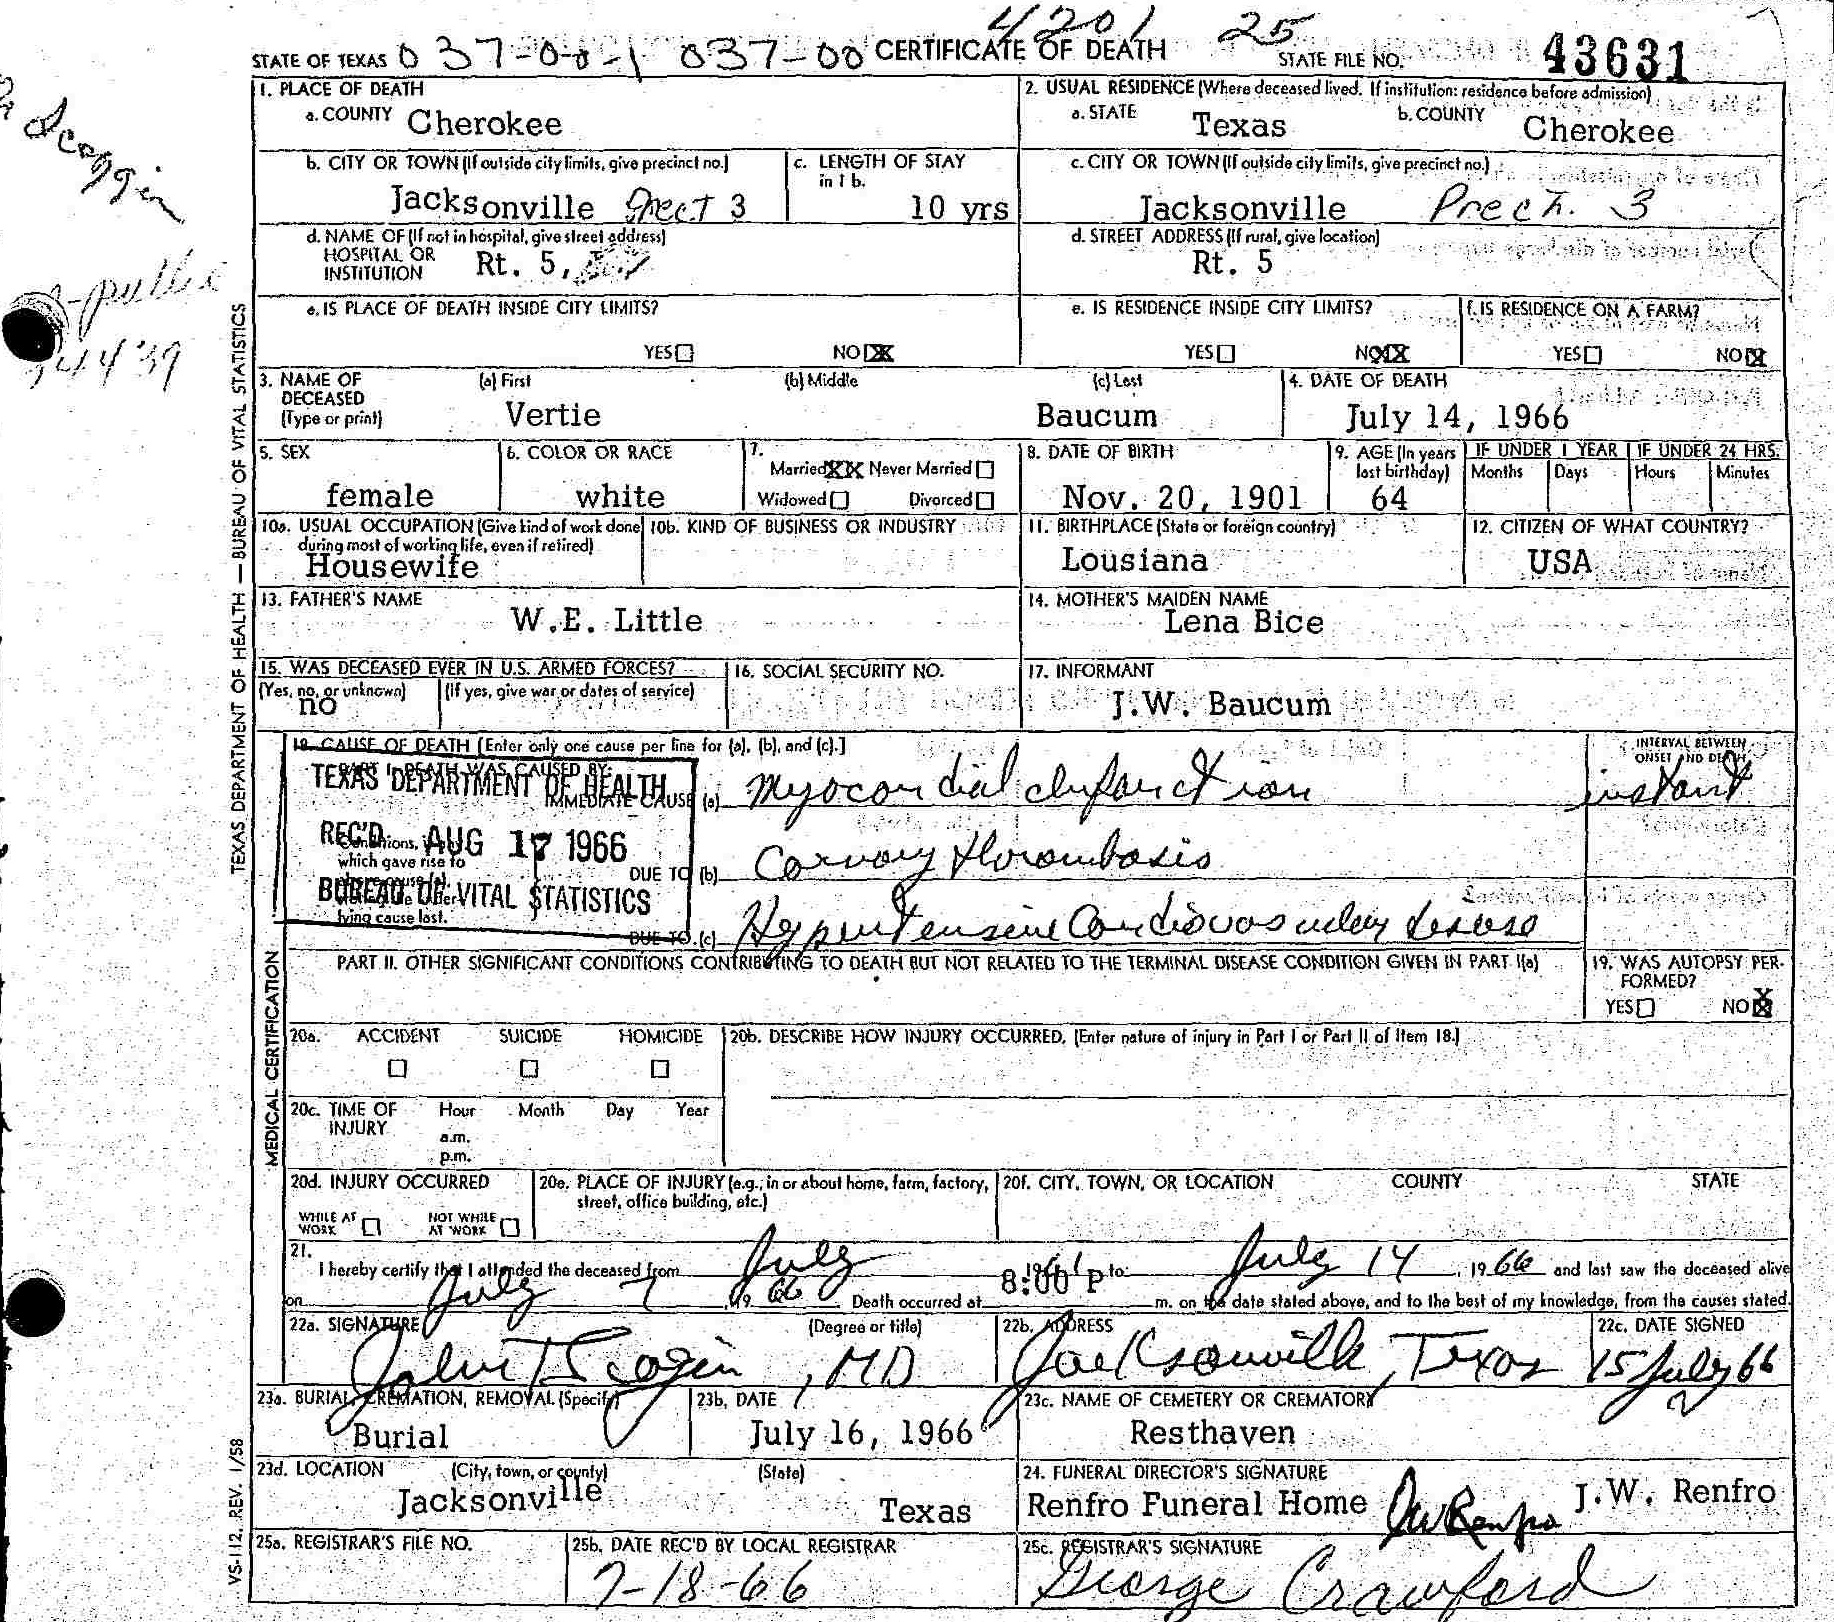 4201 25
STATE OF TEXAS 037-00-1 037-00 CERTIFICATE OF DEATH STATE FILE NO. 43631
Scoggin
1. PLACE OF DEATH
a. COUNTY Cherokee
2. USUAL RESIDENCE (Where deceased lived. If institution: residence before admission)
a. STATE Texas b. COUNTY Cherokee
b. CITY OR TOWN (If outside city limits, give precinct no.)
Jacksonville Prect 3
c. LENGTH OF STAY in 1 b.
10 yrs
c. CITY OR TOWN (If outside city limits, give precinct no.)
Jacksonville Prect. 3
d. NAME OF (If not in hospital, give street address)
HOSPITAL OR
INSTITUTION Rt. 5,
d. STREET ADDRESS (If rural, give location)
Rt. 5
e. IS PLACE OF DEATH INSIDE CITY LIMITS?
YES NO XX
e. IS RESIDENCE INSIDE CITY LIMITS?
YES NO XX
f. IS RESIDENCE ON A FARM?
YES NO X
3. NAME OF DECEASED (Type or print)
(a) First (b) Middle (c) Last
Vertie Baucum
4. DATE OF DEATH
July 14, 1966
5. SEX
female
6. COLOR OR RACE
white
7.
Married XX Never Married
Widowed Divorced
8. DATE OF BIRTH
Nov. 20, 1901
9. AGE (In years last birthday)
64
IF UNDER 1 YEAR IF UNDER 24 HRS.
Months Days Hours Minutes
10a. USUAL OCCUPATION (Give kind of work done during most of working life, even if retired)
Housewife
10b. KIND OF BUSINESS OR INDUSTRY
11. BIRTHPLACE (State or foreign country)
Lousiana
12. CITIZEN OF WHAT COUNTRY?
USA
13. FATHER'S NAME
W.E. Little
14. MOTHER'S MAIDEN NAME
Lena Bice
15. WAS DECEASED EVER IN U.S. ARMED FORCES?
(Yes, no, or unknown) (If yes, give war or dates of service)
no
16. SOCIAL SECURITY NO.
17. INFORMANT
J.W. Baucum
18. CAUSE OF DEATH [Enter only one cause per line for (a), (b), and (c).]
PART I. DEATH WAS CAUSED BY:
IMMEDIATE CAUSE (a) Myocardial infarction
INTERVAL BETWEEN ONSET AND DEATH
instant
TEXAS DEPARTMENT OF HEALTH
REC'D AUG 17 1966
BUREAU OF VITAL STATISTICS
Conditions,
which gave rise to
above cause (a)
lying cause last.
DUE TO (b) Coronary thrombosis
DUE TO (c) Hypertensive Cardiovascular desease
PART II. OTHER SIGNIFICANT CONDITIONS CONTRIBUTING TO DEATH BUT NOT RELATED TO THE TERMINAL DISEASE CONDITION GIVEN IN PART I(a)
19. WAS AUTOPSY PERFORMED?
YES NO X
20a. ACCIDENT SUICIDE HOMICIDE
20b. DESCRIBE HOW INJURY OCCURRED. (Enter nature of injury in Part I or Part II of Item 18.)
20c. TIME OF INJURY
Hour Month Day Year
a.m.
p.m.
20d. INJURY OCCURRED
WHILE AT WORK NOT WHILE AT WORK
20e. PLACE OF INJURY (e.g., in or about home, farm, factory, street, office building, etc.)
20f. CITY, TOWN, OR LOCATION COUNTY STATE
21.
I hereby certify that I attended the deceased from July 1961 to July 14, 1966 and last saw the deceased alive
on July 7, 1966 Death occurred at 8:00 P m. on the date stated above, and to the best of my knowledge, from the causes stated.
22a. SIGNATURE (Degree or title)
John T Scogin, MD
22b. ADDRESS
Jacksonville, Texas
22c. DATE SIGNED
15 July 66
23a. BURIAL, CREMATION, REMOVAL (Specify)
Burial
23b. DATE
July 16, 1966
23c. NAME OF CEMETERY OR CREMATORY
Resthaven
23d. LOCATION (City, town, or county) (State)
Jacksonville Texas
24. FUNERAL DIRECTOR'S SIGNATURE
Renfro Funeral Home JW Renfro J.W. Renfro
25a. REGISTRAR'S FILE NO.
25b. DATE REC'D BY LOCAL REGISTRAR
7-18-66
25c. REGISTRAR'S SIGNATURE
George Crawford
TEXAS DEPARTMENT OF HEALTH — BUREAU OF VITAL STATISTICS
MEDICAL CERTIFICATION
VS-112, REV. 1/58